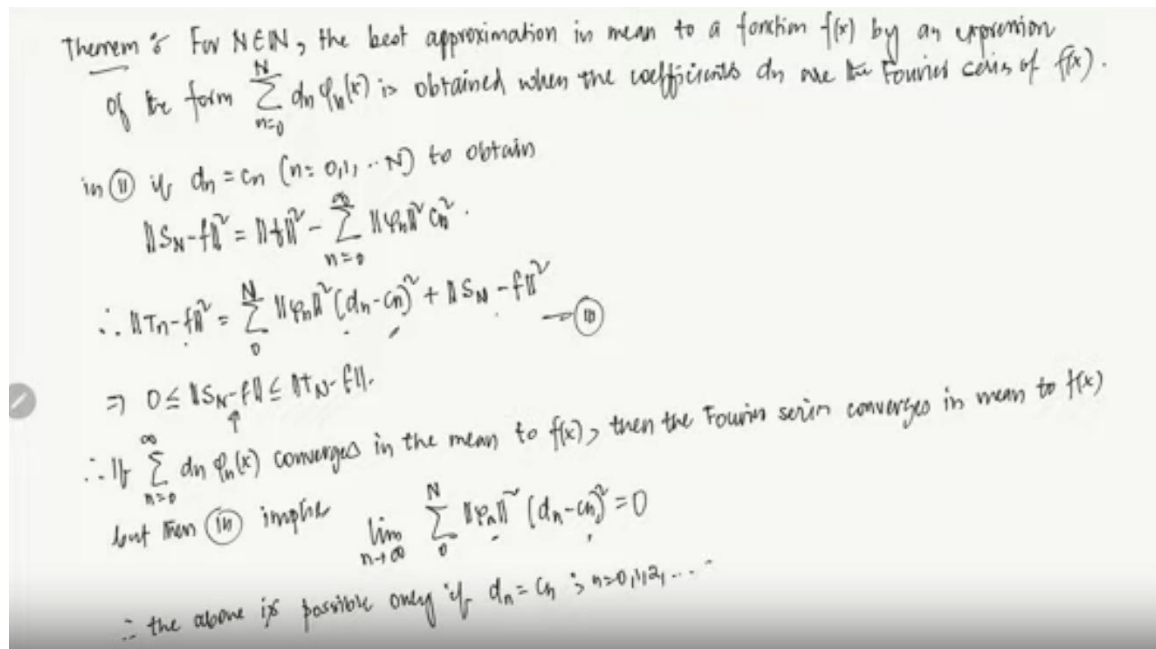 Theorem : For N∈ℕ, the best approximation in mean to a function f(x) by an expression
of the form ∑_{n=0}^{N} dn φn(x) is obtained when the coefficients dn are the Fourier coeffs of f(x).
in (ii) if dn = cn (n = 0,1, ... N) to obtain
‖SN-f‖² = ‖f‖² - ∑_{n=0}^{∞} ‖φn‖² cn².
∴ ‖Tn-f‖² = ∑_{0}^{N} ‖φn‖² (dn-cn)² + ‖SN-f‖² — (iii)
⇒ 0 ≤ ‖SN-f‖ ≤ ‖TN-f‖.
∴ If ∑_{n=0}^{∞} dn φn(x) converges in the mean to f(x), then the Fourier series converges in mean to f(x)
but then (iii) implies lim_{n→∞} ∑_{0}^{N} ‖φn‖² (dn-cn)² = 0
∴ the above is possible only if dn = cn ; n=0,1,2, ....